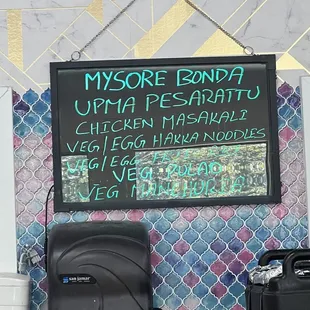 MYSORE BONDA
UPMA PESARATTU
CHICKEN MASAKALI
VEG/EGG HAKKA NOODLES
VEG/EGG
VEG PULAO
VEG
san jamar